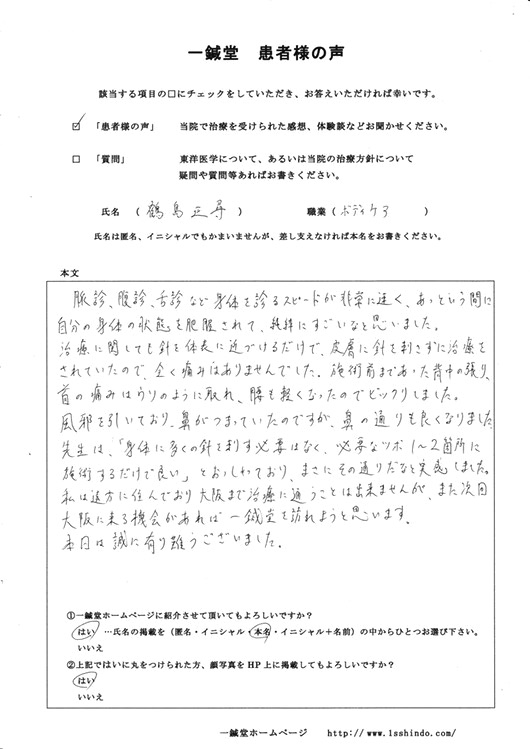 一鍼堂 患者様の声
該当する項目の□にチェックをしていただき、お答えいただければ幸いです。
☑ 「患者様の声」 当院で治療を受けられた感想、体験談などお聞かせください。
□ 「質問」 東洋医学について、あるいは当院の治療方針について
疑問や質問等あればお書きください。
氏名 ( 鶴島正尋 ) 職業 ( ボディケア )
氏名は匿名、イニシャルでもかまいませんが、差し支えなければ本名をお書きください。
本文
脈診、腹診、舌診など身体を診るスピードが非常に速く、あっという間に
自分の身体の状態を把握されて、純粋にすごいなと思いました。
治療に関しても針を体表に近づけるだけで、皮膚に針を刺さずに治療を
されていたので、全く痛みはありませんでした。施術前まであった背中の張り、
首の痛みはウソのように取れ、腰も軽くなったのでビックリしました。
風邪を引いており、鼻がつまっていたのですが、鼻の通りも良くなりました。
先生は、「身体に多くの針を刺す必要はなく、必要なツボ1〜2箇所に
施術するだけで良い」とおっしゃっており、まさにその通りだなと実感しました。
私は遠方に住んでおり大阪まで治療に通うことは出来ませんが、また次回
大阪に来る機会があれば一鍼堂を訪れようと思います。
本日は誠に有り難うございました。
①一鍼堂ホームページに紹介させて頂いてもよろしいですか？
はい …氏名の掲載を（匿名・イニシャル・本名・イニシャル＋名前）の中からひとつお選び下さい。
いいえ
②上記ではいに丸をつけられた方、顔写真をHP上に掲載してもよろしいですか？
はい
いいえ
一鍼堂ホームページ http://www.1sshindo.com/